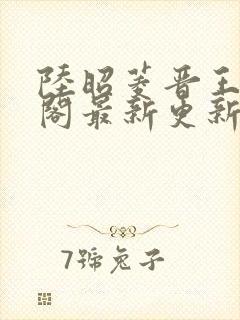 陸昭菱晋王
閣最新更新
7號兔子